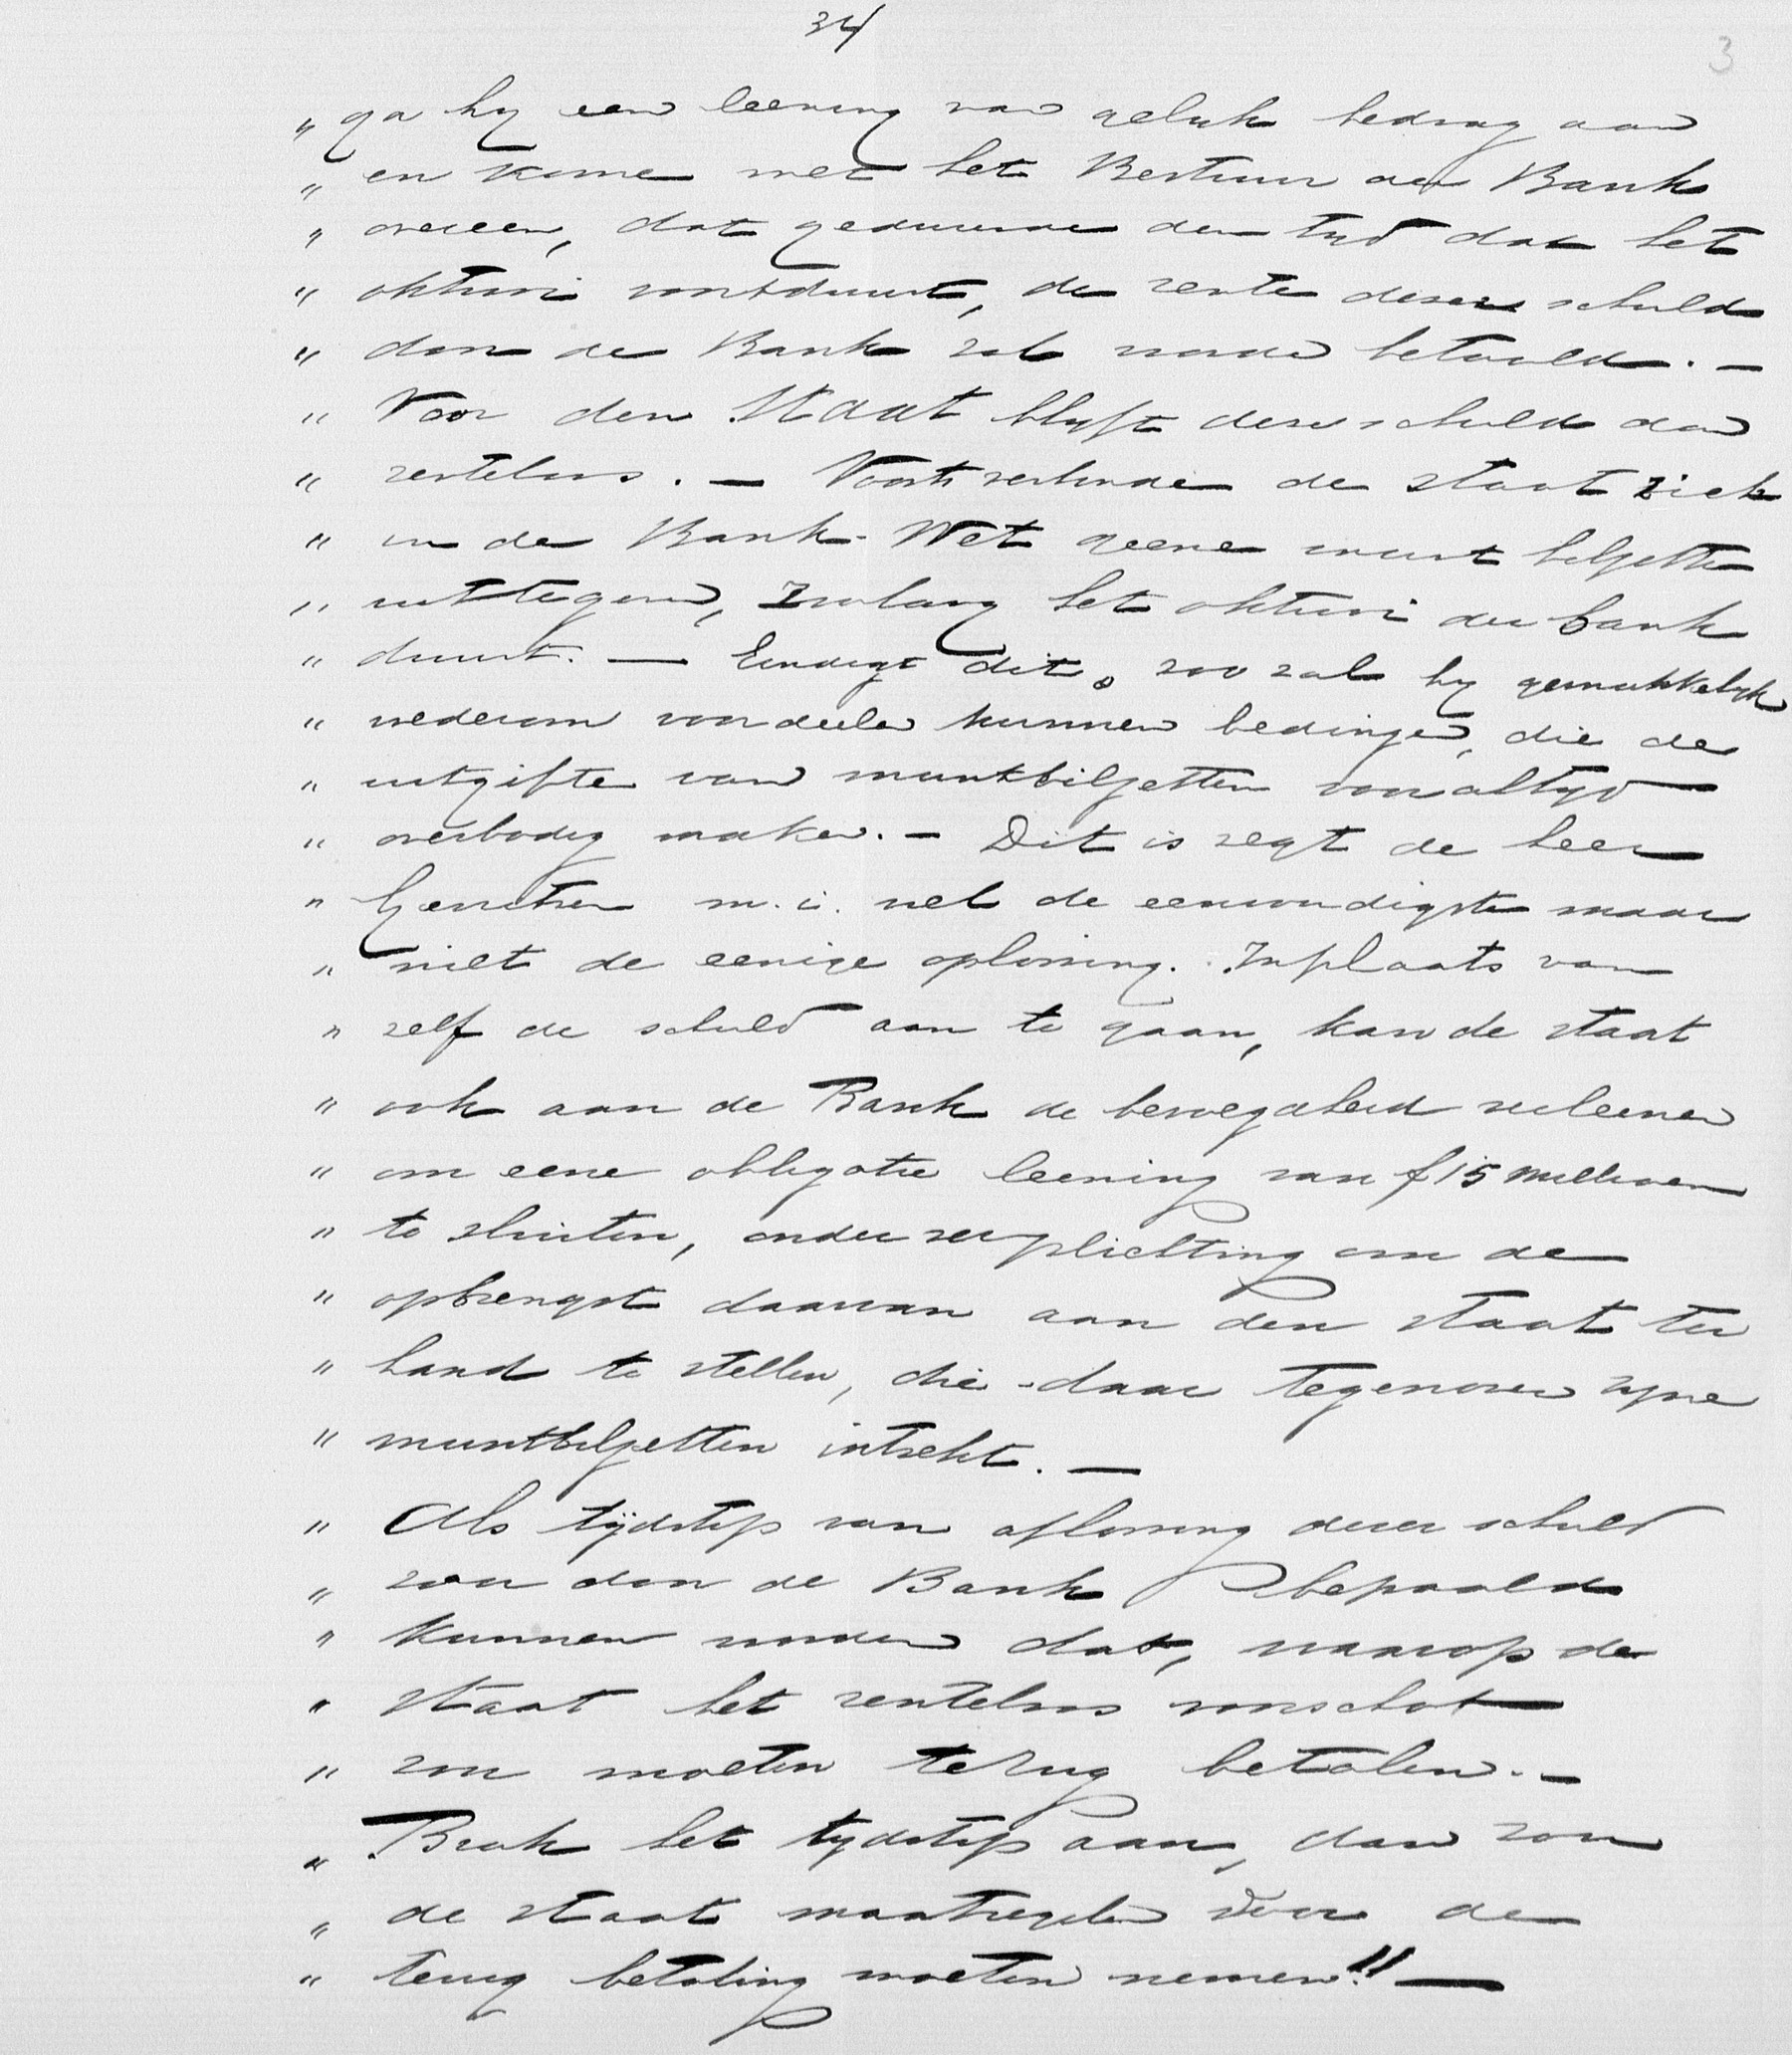 34
3
" ga hy een leening van gelyk bedrag aan
" en kome met het Bestuur der Bank
" overeen, dat gedurende den tyd dat het
" oktrooi voortduurt, de rente dezer schuld
" door de Bank zal worden betaald. —
" Voor den Staat blyft deze schuld dan
" renteloos. — Voorts verbinde de staat zich
" in de Bank-Wet geene munt biljetten
" uittegeven, Zoolang het oktrooi der bank
" duurt. — Eindigt dit, zoo zal hy gemakkelyk
" wederom voordeelen kunnen bedingen, die de
" uitgifte van muntbiljetten voor altyd
" overbodig maken. — Dit is zegt de heer
" m. i. wel de eenvoudigste maar
" niet de eenige oplossing. Inplaats van
" zelf de schuld aan te gaan, kan de staat
" ook aan de Bank de bevoegdheid verleenen
" om eene obligatie leening van f 15 millioen
" te sluiten, onder verplichting om de
" opbrengst daarvan aan den staat ter
" hand te stellen, die daar tegenover zyne
" muntbiljetten intrekt. —
" Als tijdstip van aflossing dezer schuld
" zou door de Bank bepaald
" kunnen worden dat, waarop de
" staat het renteloos voorschot
" zou moeten terug betalen. —
" Brak het tydstip aan, dan zou
" de staat maatregelen voor de
" terug betaling moeten nemen!" —